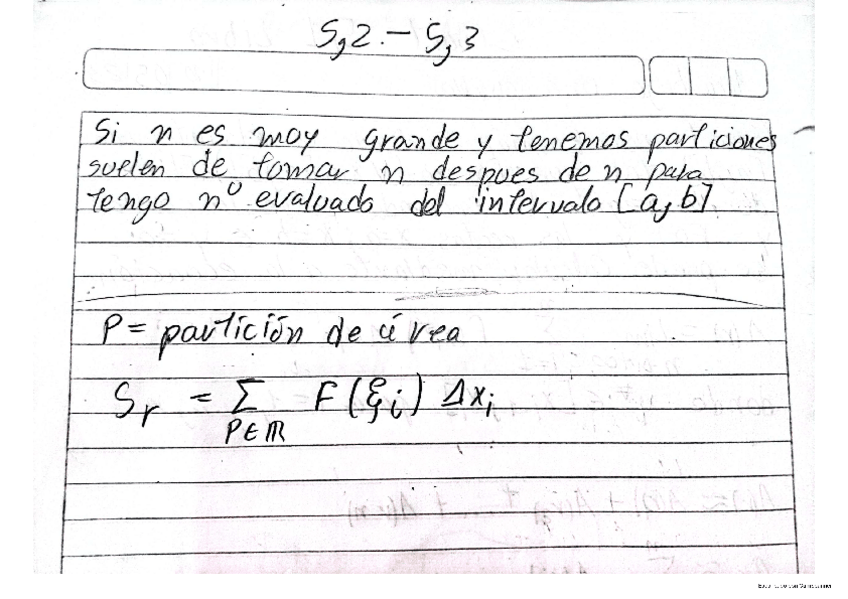 5,2.- 5,3
Si n es muy grande y tenemos particiones
suelen de tomar n despues de n para
tengo nº evaluado del intervalo [a,b]
P = partición de área
Sr = Σ F(ξi) Δxi
P∈ℝ